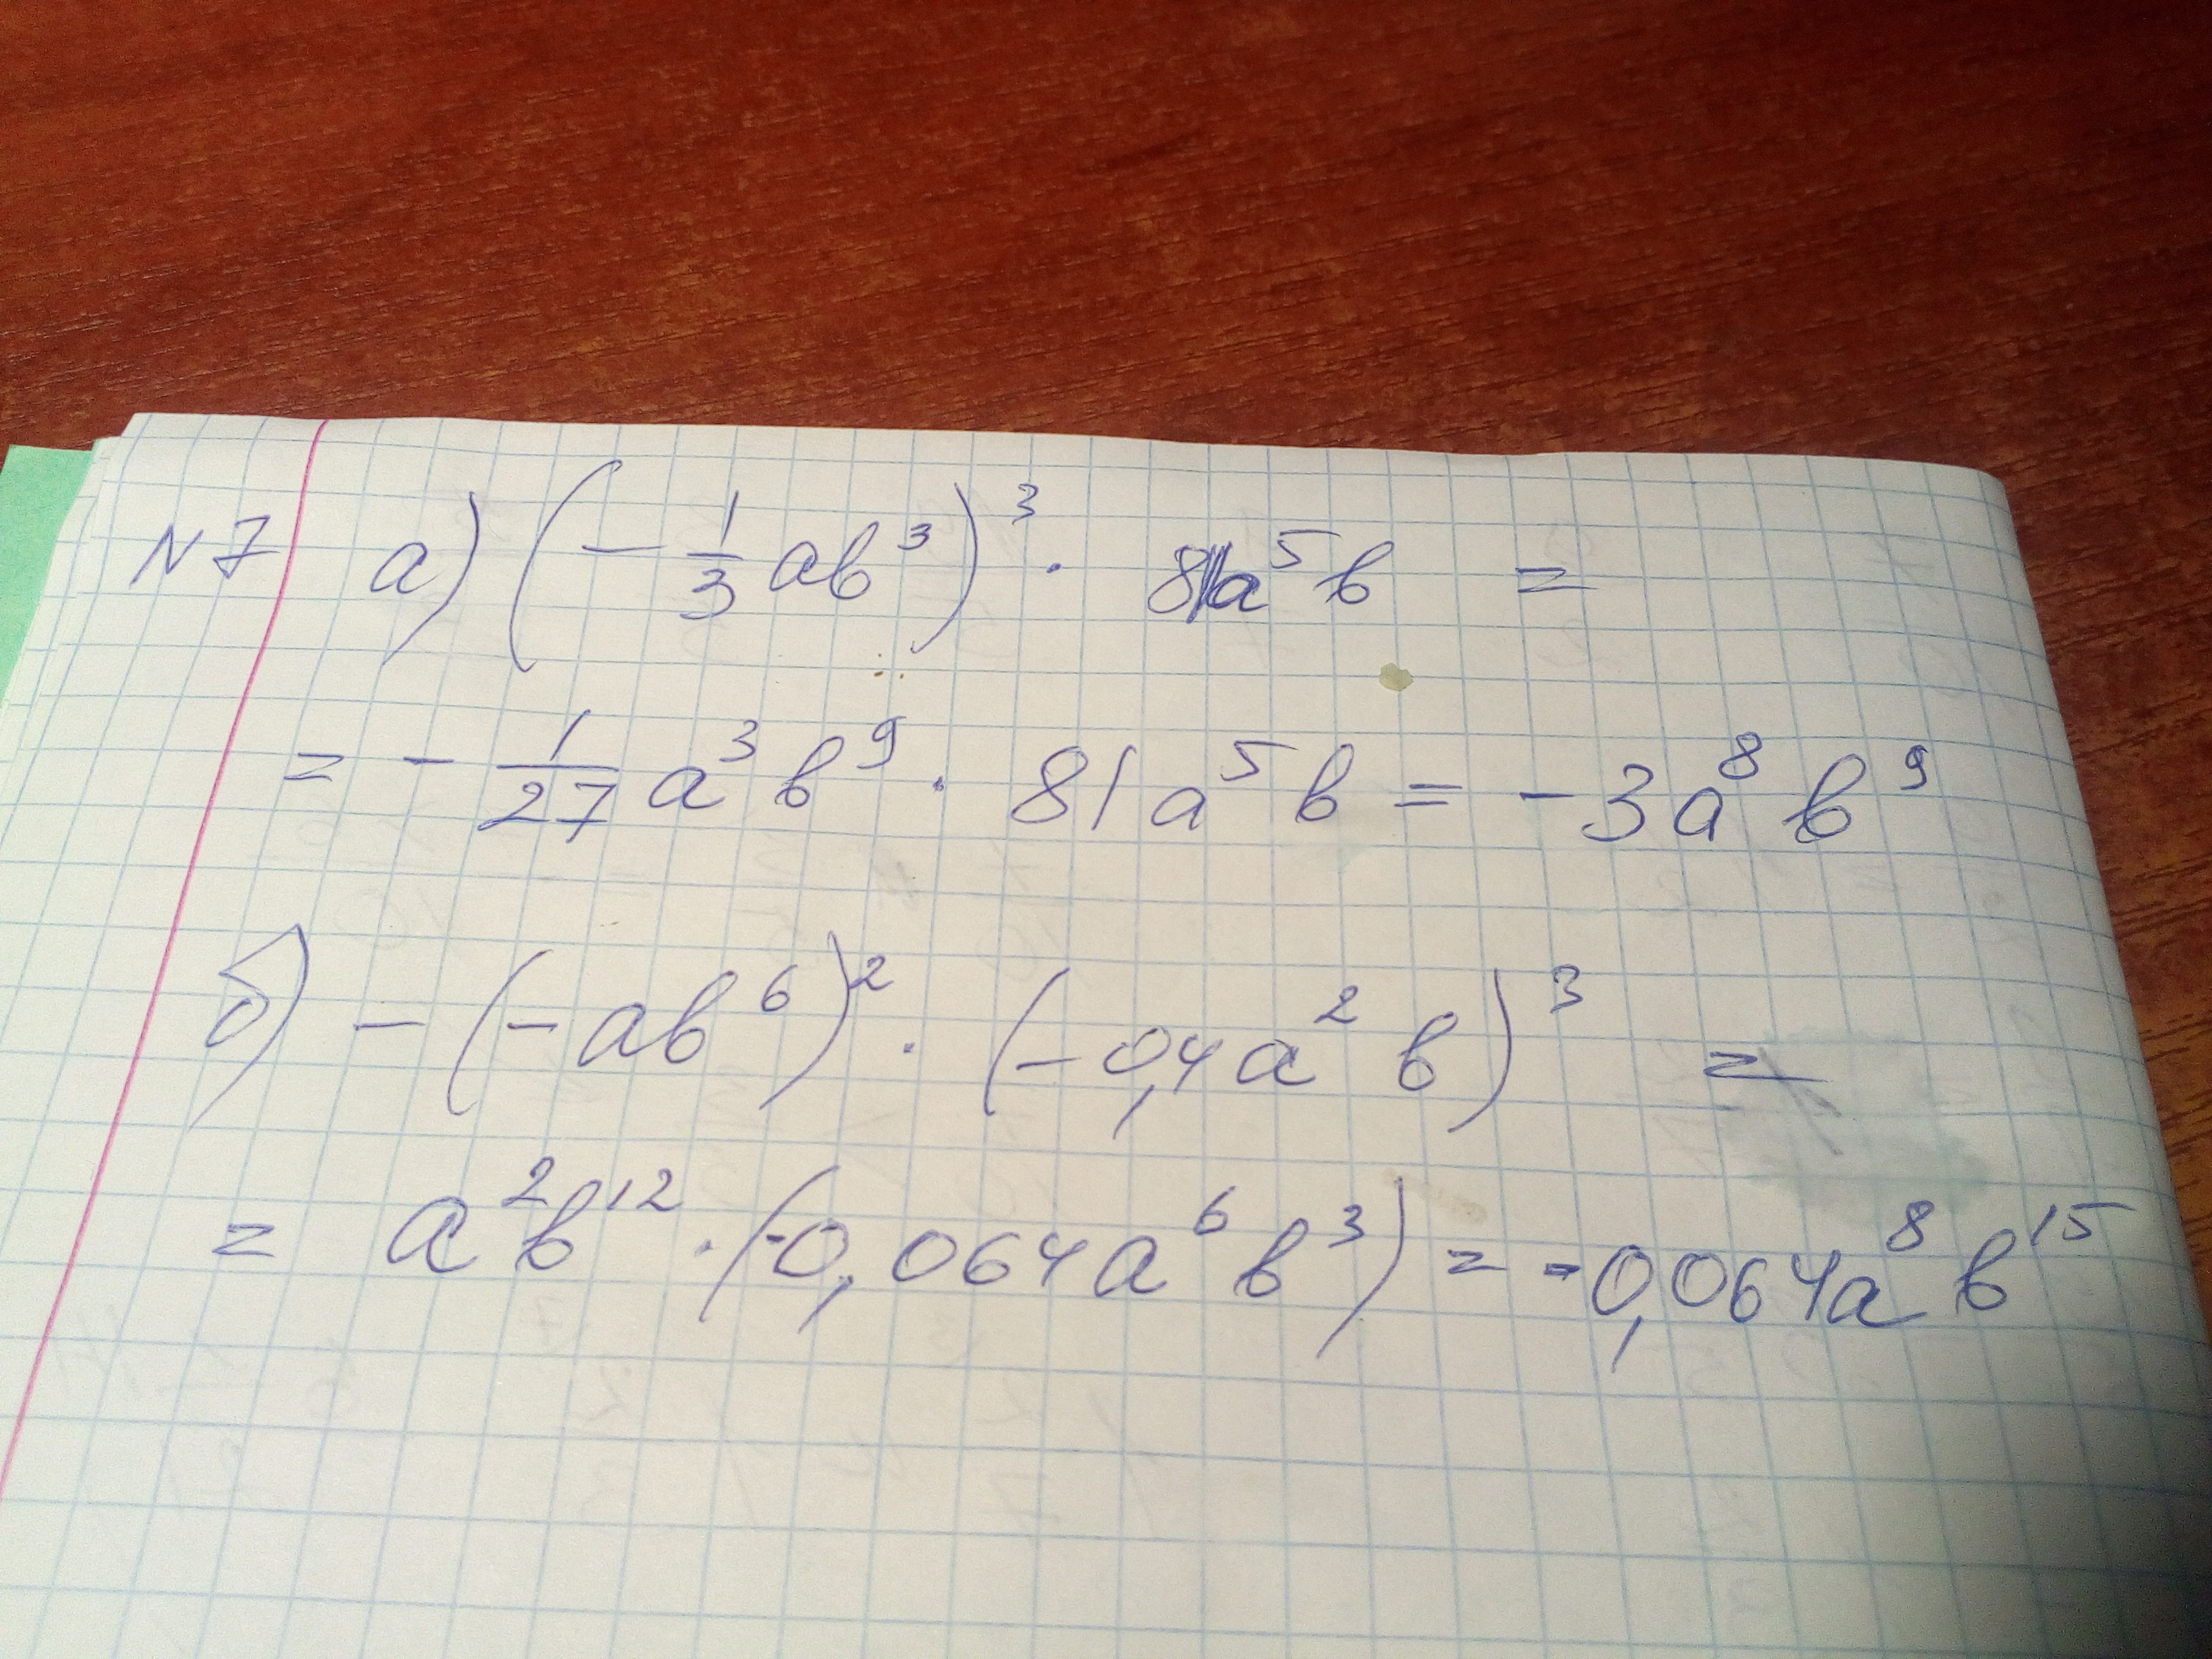 N7 а) (-1/3 ab³)³ · 81a⁵b =
= - 1/27 a³b⁹ · 81a⁵b = -3a⁸b⁹
б) -(-ab⁶)² · (-0,4a²b)³ =
= a²b¹² · (-0,064a⁶b³) = -0,064a⁸b¹⁵